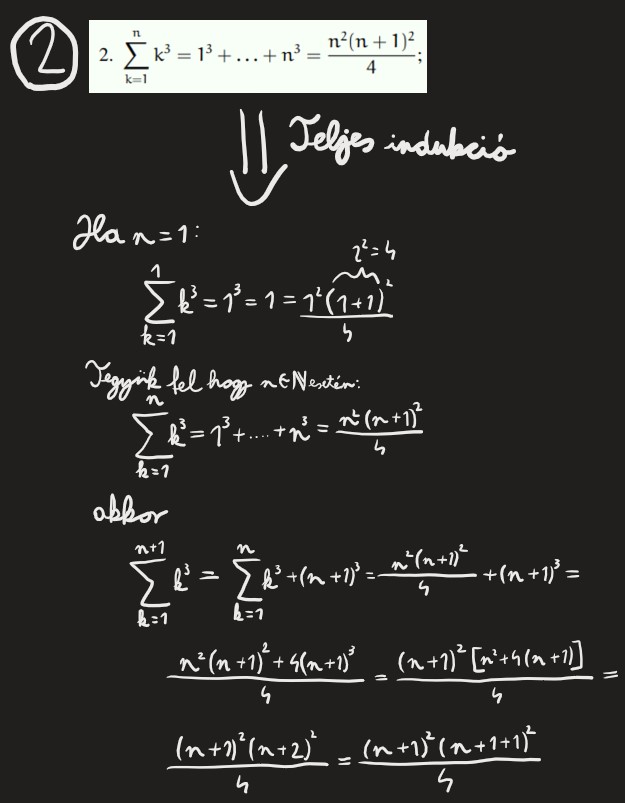 2
2. ∑_{k=1}^{n} k³ = 1³ + ... + n³ = n²(n + 1)²/4;
Teljes indukció
Ha n=1:
∑_{k=1}^{1} k³ = 1³ = 1 = 1²(1+1)²/4 2²=4
Tegyük fel hogy n∈ℕ esetén:
∑_{k=1}^{n} k³ = 1³+....+n³ = n²(n+1)²/4
akkor
∑_{k=1}^{n+1} k³ = ∑_{k=1}^{n} k³ +(n+1)³ = n²(n+1)²/4 +(n+1)³ =
n²(n+1)²+4(n+1)³/4 = (n+1)²[n²+4(n+1)]/4 =
(n+1)²(n+2)²/4 = (n+1)²(n+1+1)²/4